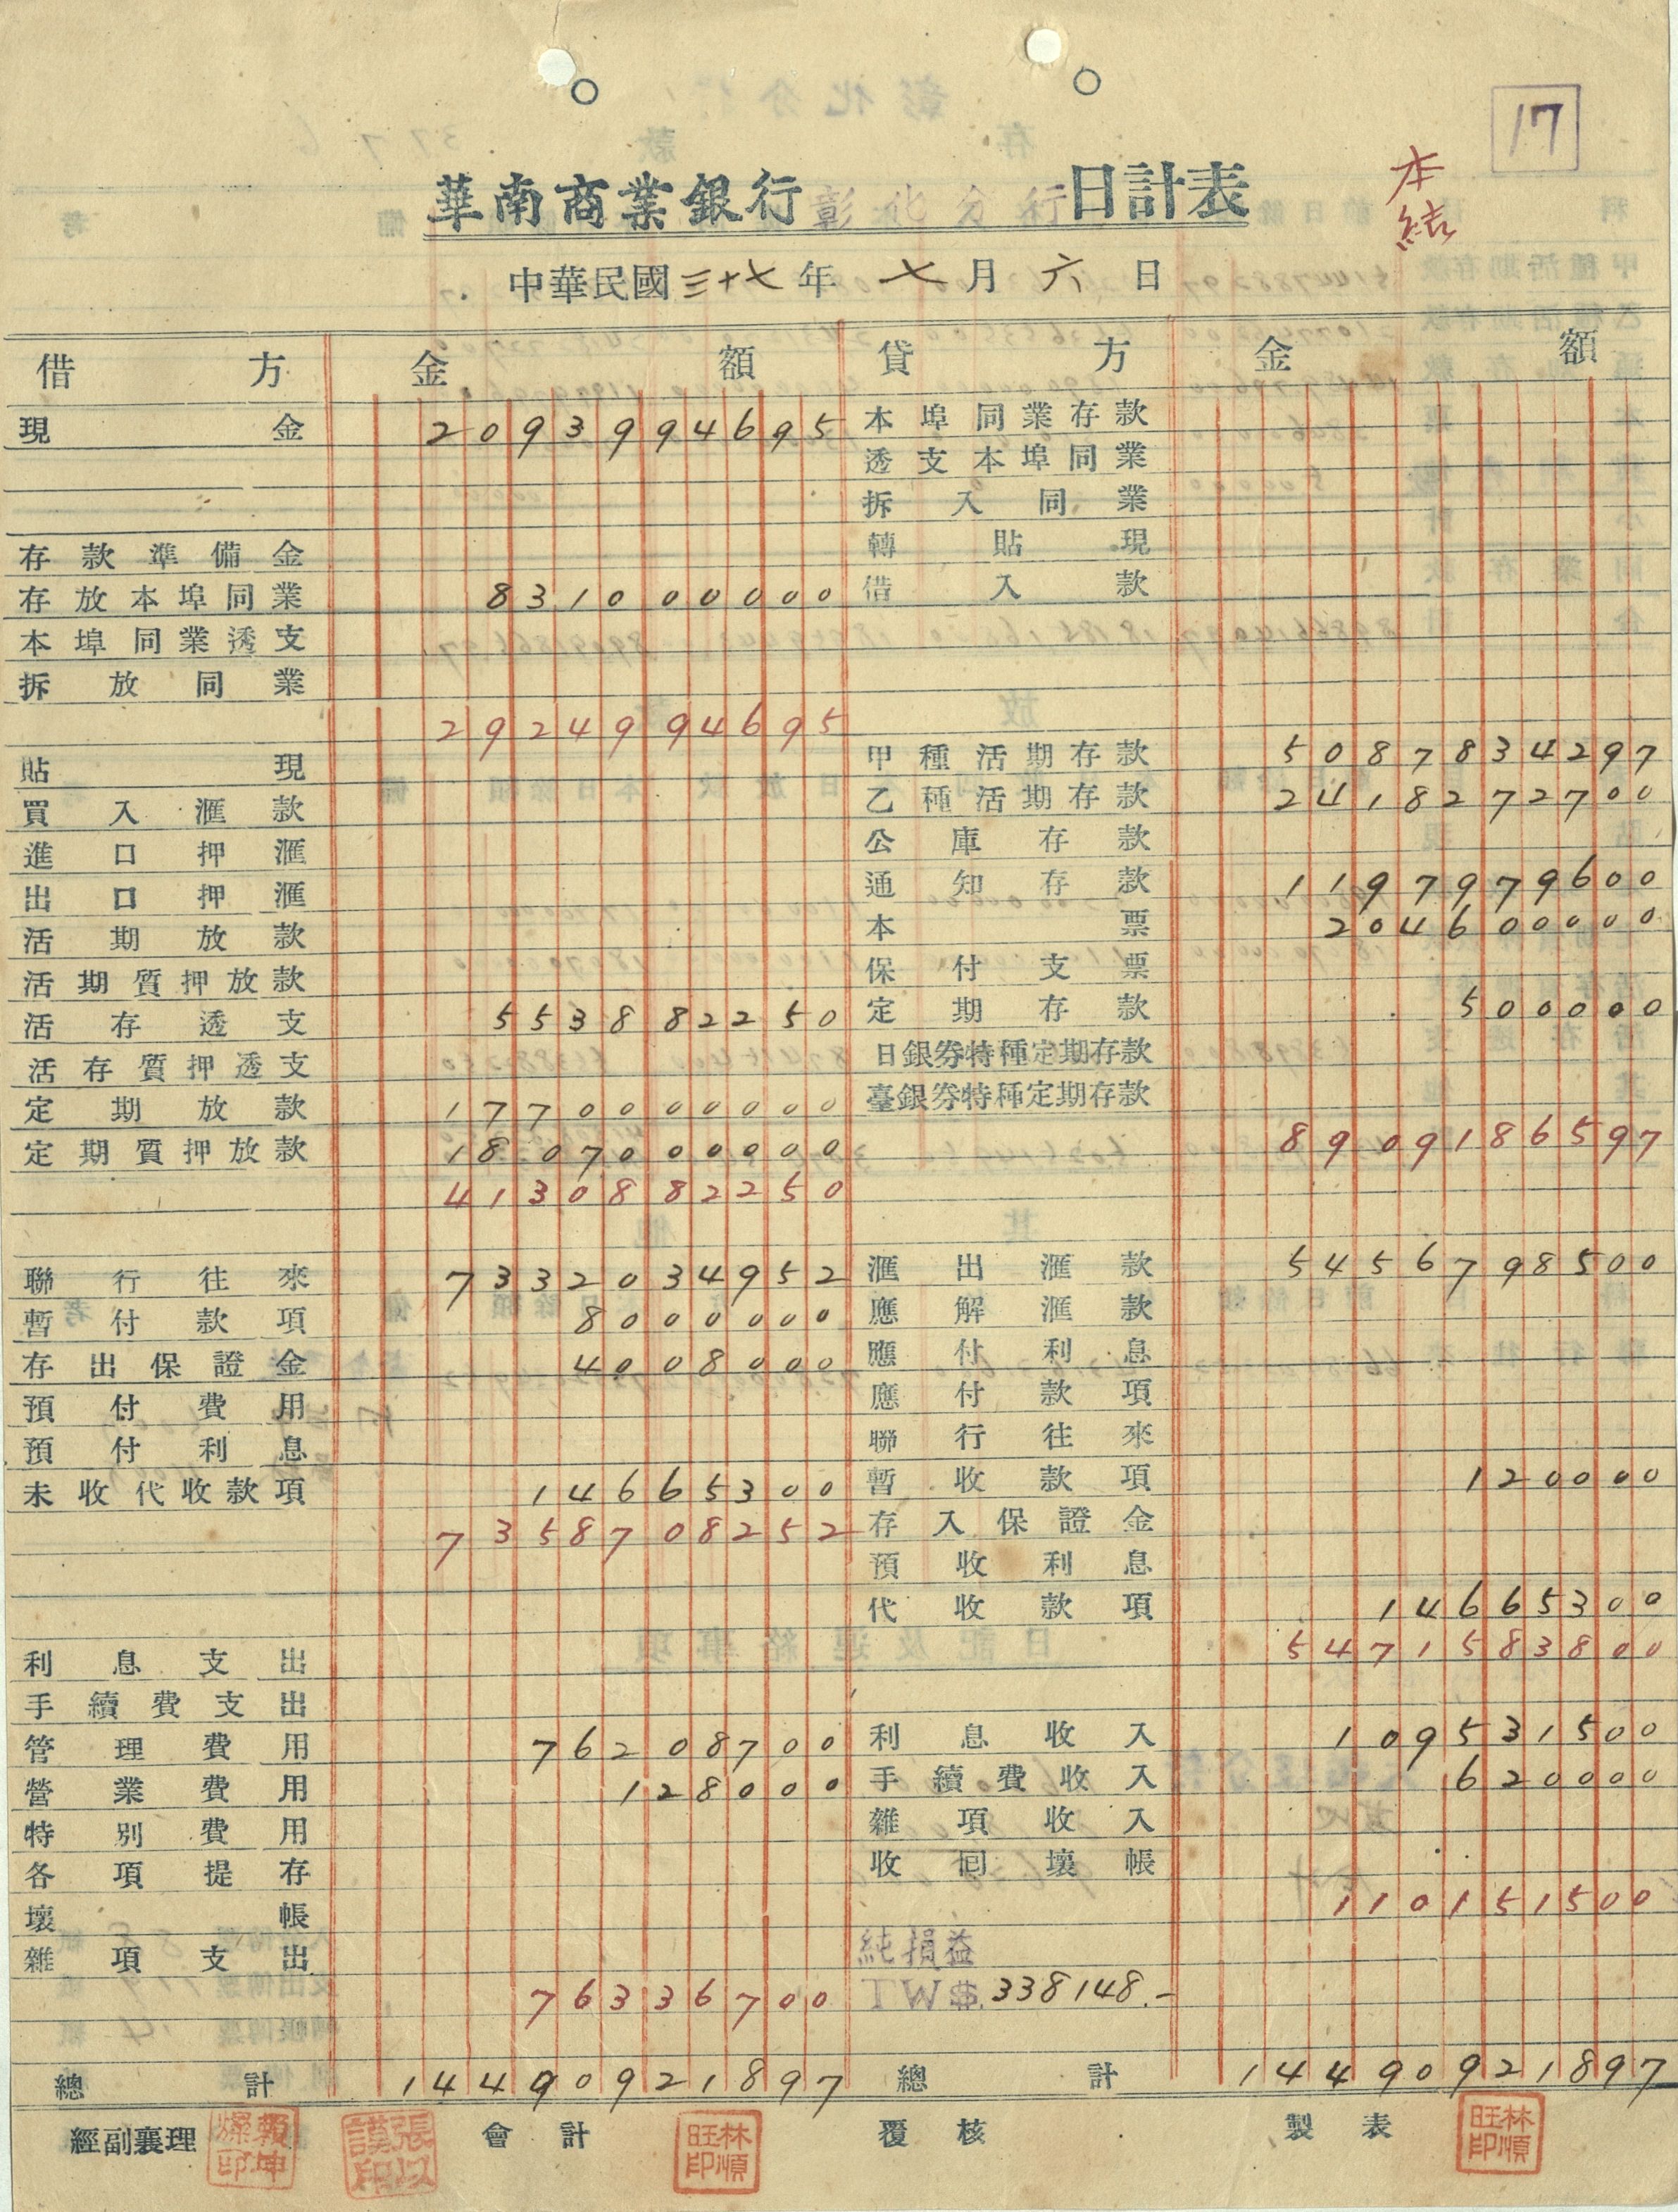 17
本結
華南商業銀行 彰化分行 日計表
中華民國三十七年 七月六日
借方 金額 貸方 金額
現金 2093994695 本埠同業存款
透支本埠同業
拆入同業
存款準備金 轉貼現
存放本埠同業 831000000 借入款
本埠同業透支
拆放同業
2924994695
貼現 甲種活期存款 5087834297
買入滙款 乙種活期存款 2418272700
進口押滙 公庫存款
出口押滙 通知存款 1197979600
活期放款 本票 204600000
活期質押放款 保付支票
活存透支 553882250 定期存款 500000
活存質押透支 日銀券特種定期存款
定期放款 1770000000 臺銀券特種定期存款
定期質押放款 1807000000 8909186597
4130882250
聯行往來 7332034952 滙出滙款 5456798500
暫付款項 8000000 應解滙款
存出保證金 4008000 應付利息
預付費用 應付款項
預付利息 聯行往來
未收代收款項 14665300 暫收款項 120000
7358708252 存入保證金
預收利息
代收款項 14665300
利息支出 5471583800
手續費支出
管理費用 76208700 利息收入 109531500
營業費用 128000 手續費收入 620000
特別費用 雜項收入
各項提存 收回壞帳
壞帳 110151500
雜項支出 純損益
76336700 TW$ 338148.-
總計 14490921897 總計 14490921897
經副襄理 會計 覆核 製表
林順旺印
林順旺印